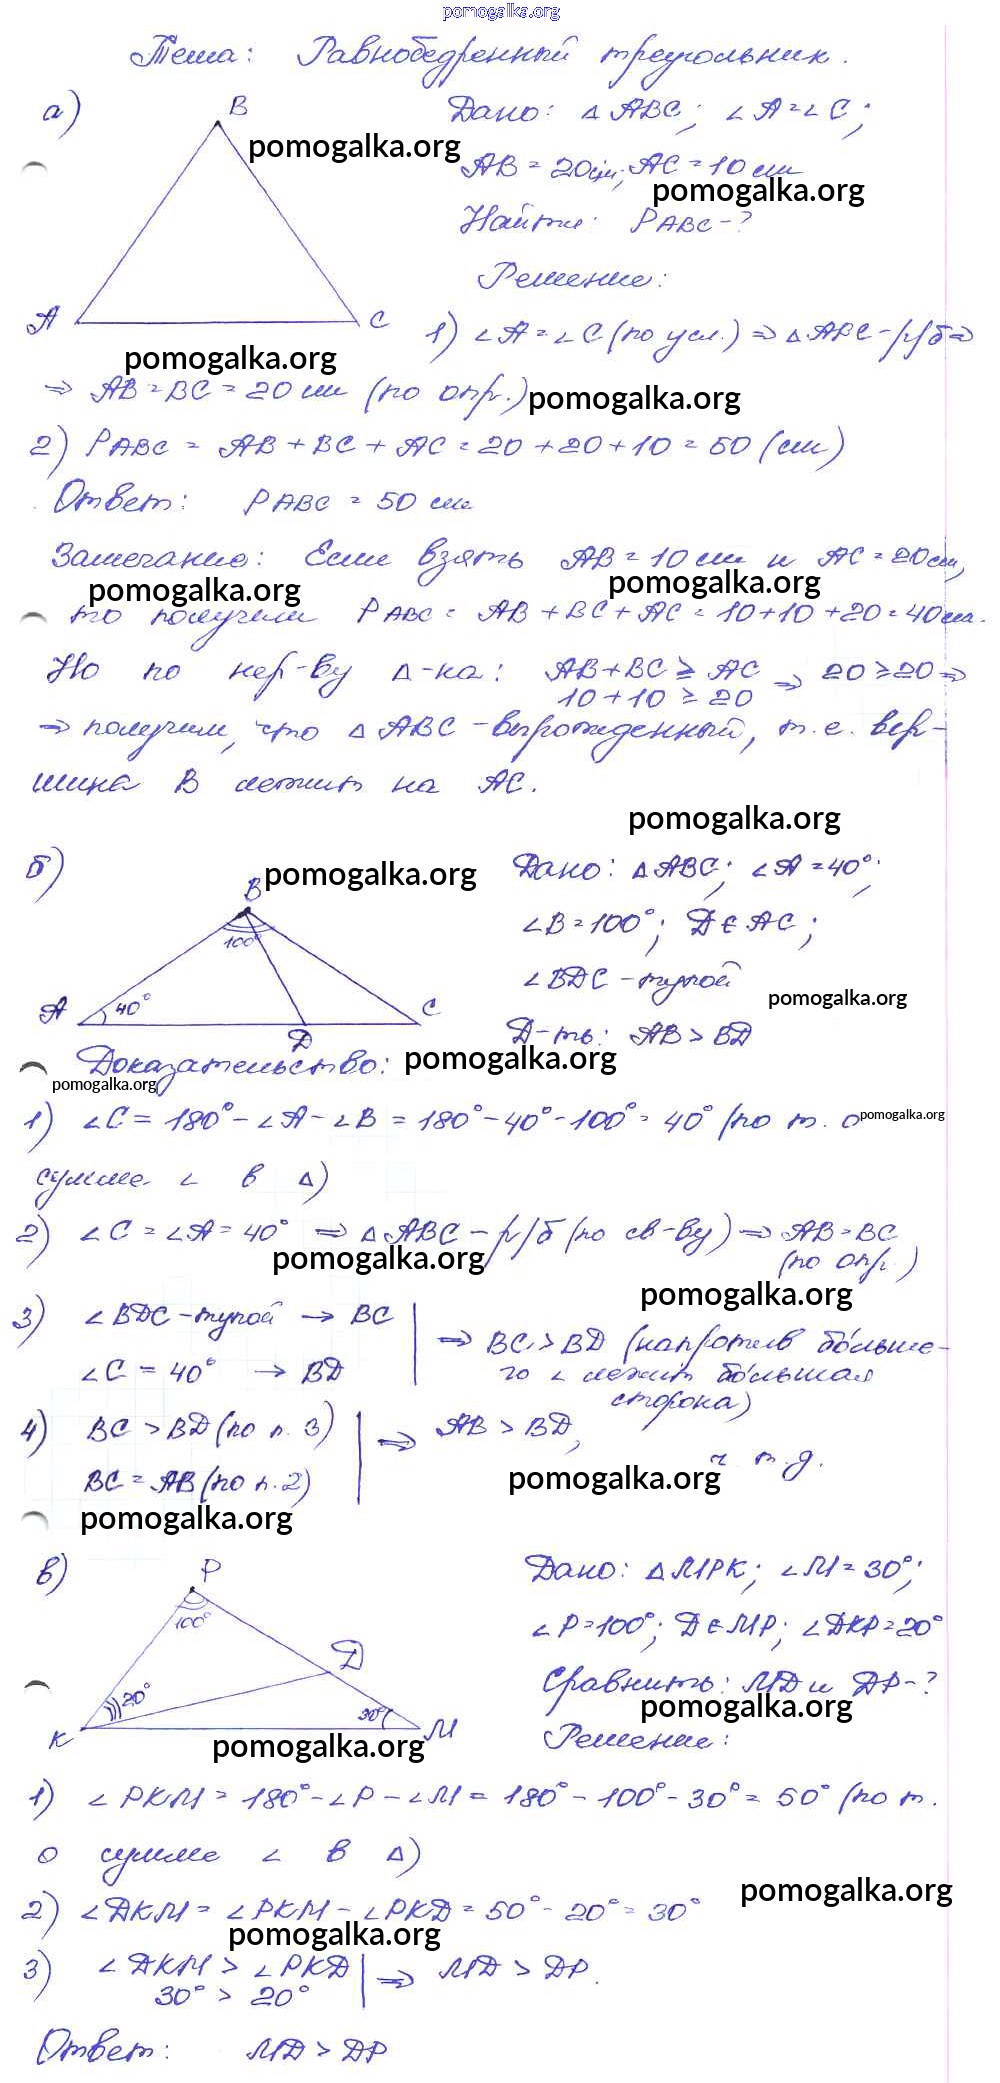 pomogalka.org
Тема: Равнобедренный треугольник.
а)
B
Дано: △ ABC; ∠A=∠C;
pomogalka.org
AB = 20см; AC = 10 см
pomogalka.org
Найти: PABC-?
Решение:
A
C
1) ∠A=∠C (по усл.) ⇒ △ABC-р/б⇒
pomogalka.org
⇒ AB=BC = 20 см (по опр.)
pomogalka.org
2) PABC = AB+BC+AC=20+20+10=50 (см)
Ответ: PABC = 50 см
Замечание: Если взять AB=10 см и AC=20см,
pomogalka.org
pomogalka.org
то получим PABC = AB+BC+AC=10+10+20=40см.
Но по нер-ву △-ка: AB+BC ≥ AC ⇒ 20≥20⇒
10+10 ≥ 20
⇒ получим, что △ABC-вырожденный, т.е. вер-
шина B лежит на AC.
pomogalka.org
б)
B
pomogalka.org
Дано: △ABC; ∠A=40°;
100°
∠B=100°; D∈AC;
∠BDC-тупой
A
40°
C
pomogalka.org
D
Д-ть: AB>BD
Доказательство:
pomogalka.org
pomogalka.org
1) ∠C=180°-∠A-∠B=180°-40°-100°=40° (по т. о
pomogalka.org
сумме ∠ в △)
2) ∠C=∠A=40° ⇒ △ABC-р/б (по св-ву) ⇒ AB=BC
pomogalka.org
(по опр.)
pomogalka.org
3) ∠BDC-тупой → BC
⇒ BC>BD (напротив бóльше-
∠C = 40° → BD
го ∠ лежит бóльшая
сторона)
4) BC > BD (по п. 3)
⇒ AB > BD,
ч. т. д.
BC = AB (по п. 2)
pomogalka.org
pomogalka.org
в)
P
Дано: △MPK; ∠M=30°;
100°
∠P=100°; D∈MP; ∠DKP=20°
D
Сравнить: MD и DP-?
20°
30°
pomogalka.org
K
M
Решение:
pomogalka.org
1) ∠PKM=180°-∠P-∠M=180°-100°-30°=50° (по т.
о сумме ∠ в △)
pomogalka.org
2) ∠DKM=∠PKM-∠PKD=50°-20°=30°
pomogalka.org
3) ∠DKM > ∠PKD ⇒ MD > DP.
30° > 20°
Ответ: MD > DP